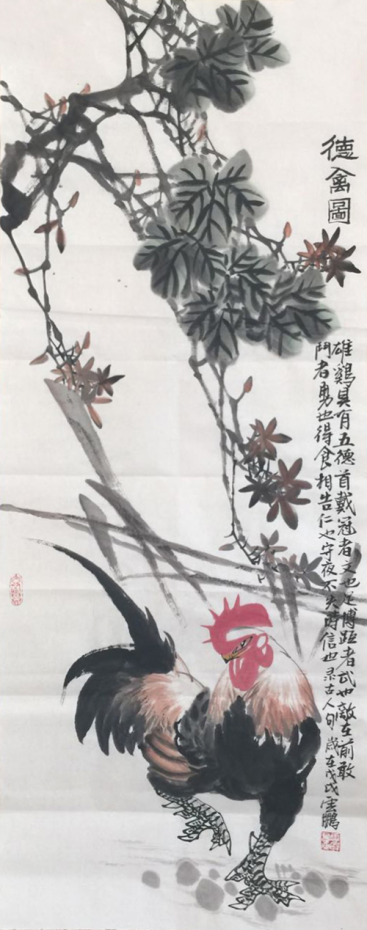 德禽圖
雄鷄具有五德首戴冠者文也足博距者武也敵在前敢
鬥者勇也得食相告仁也守夜不失時信也录古人句歲在戊戌雲鵬